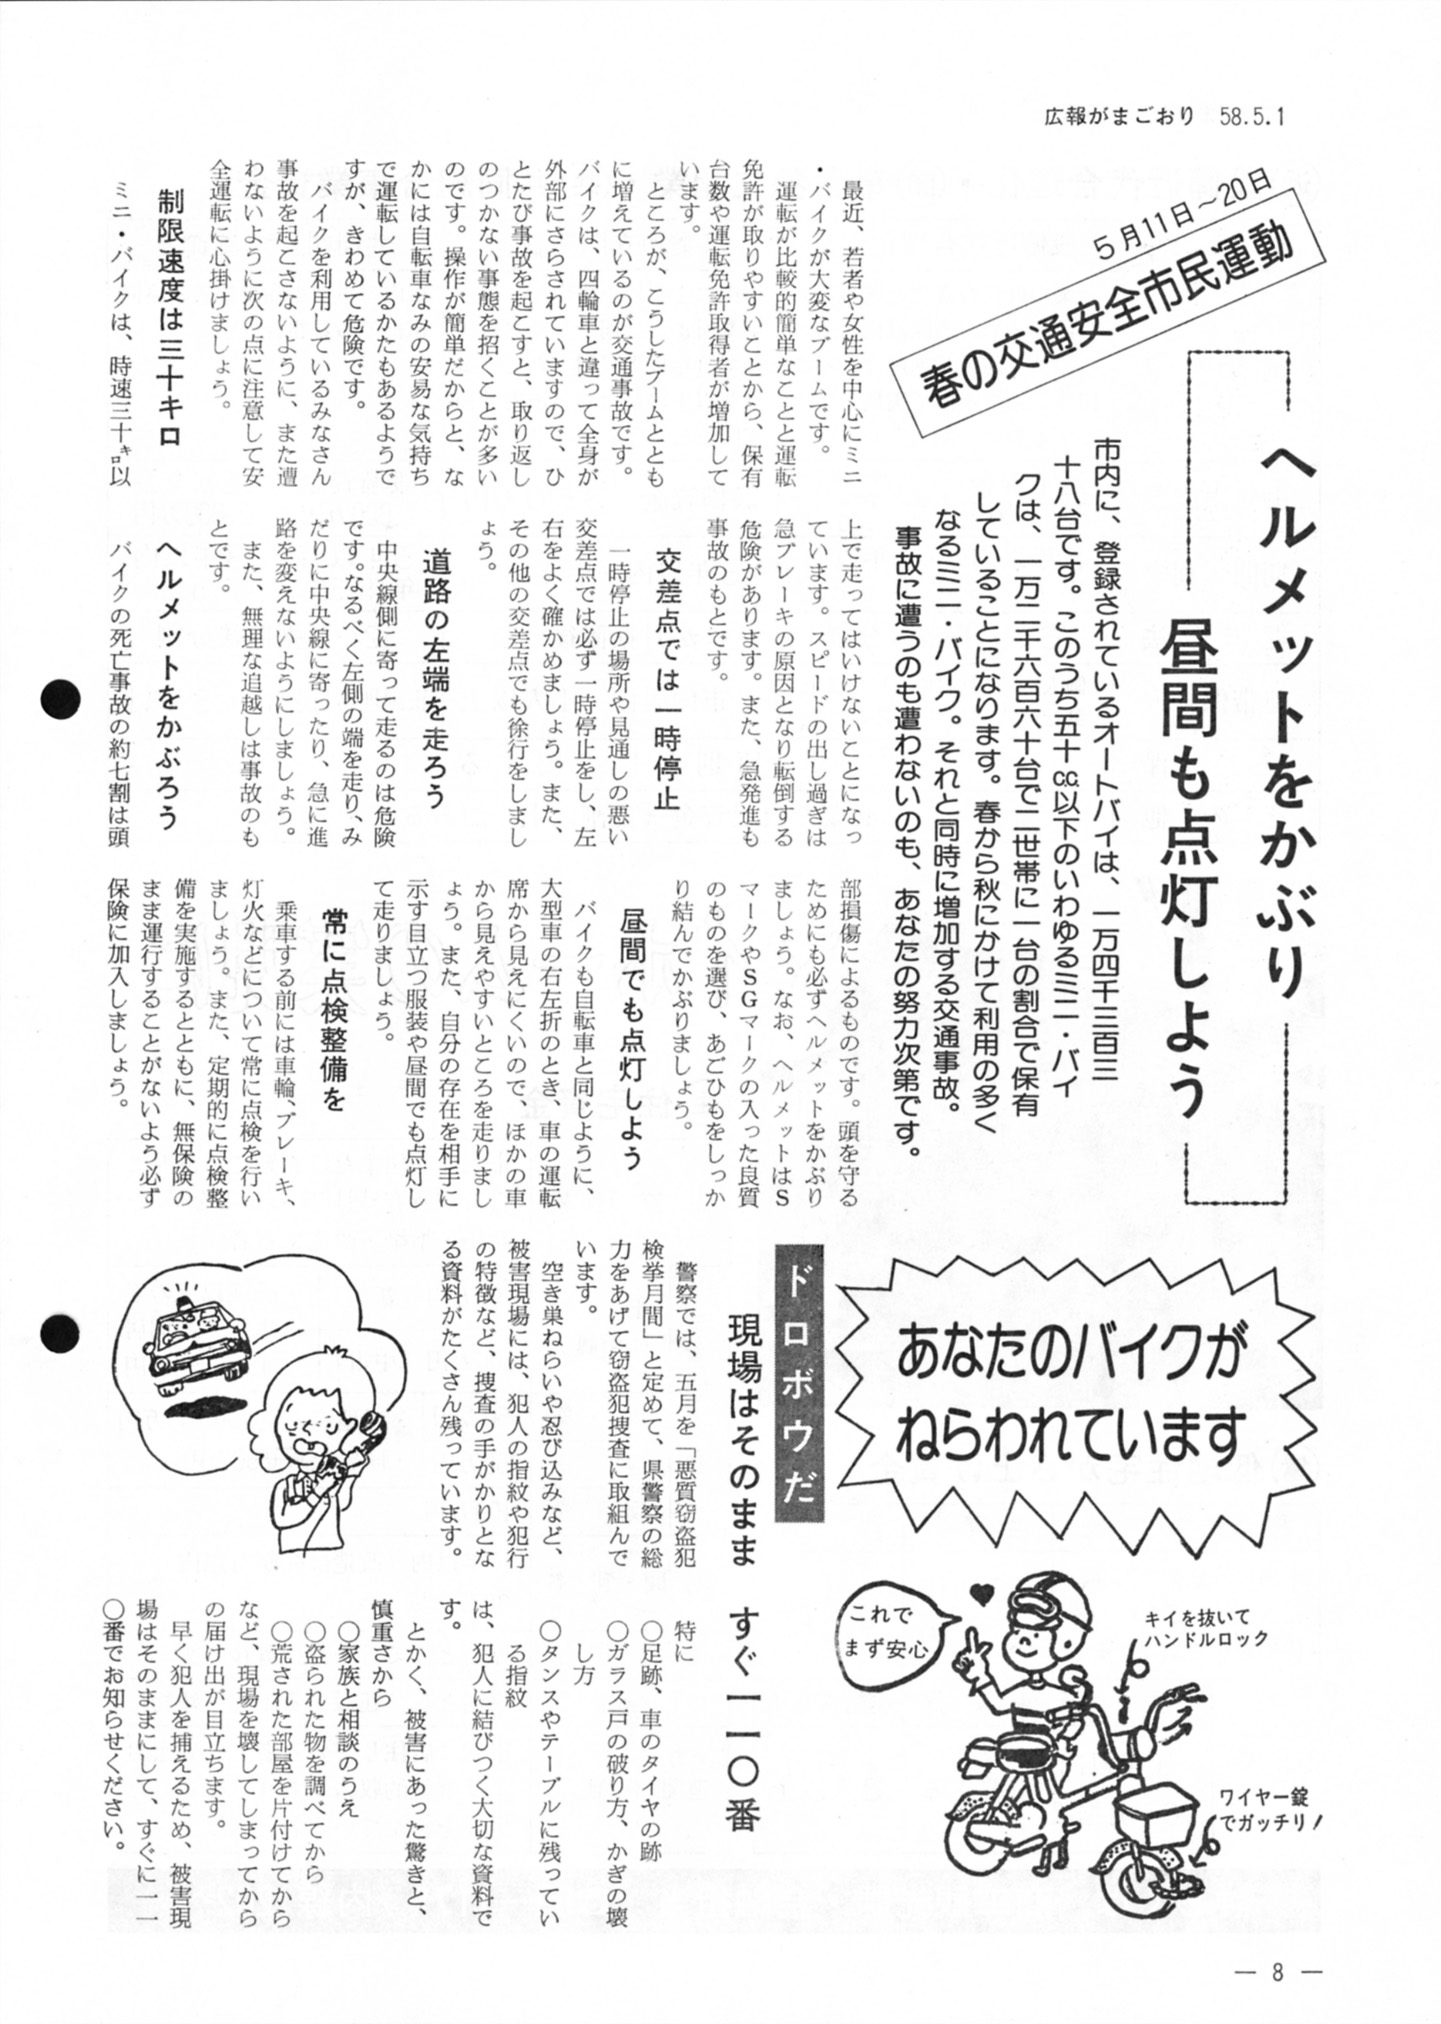 広報がまごおり 58.5.1
5月11日～20日
春の交通安全市民運動
ヘルメットをかぶり
昼間も点灯しよう
市内に、登録されているオートバイは、一万四千三百三
十八台です。このうち五十㏄以下のいわゆるミニ・バイ
クは、一万二千六百六十台で二世帯に一台の割合で保有
していることになります。春から秋にかけて利用の多く
なるミニ・バイク。それと同時に増加する交通事故。
事故に遭うのも遭わないのも、あなたの努力次第です。
最近、若者や女性を中心にミニ
・バイクが大変なブームです。
運転が比較的簡単なことと運転
免許が取りやすいことから、保有
台数や運転免許取得者が増加して
います。
ところが、こうしたブームととも
に増えているのが交通事故です。
バイクは、四輪車と違って全身が
外部にさらされていますので、ひ
とたび事故を起こすと、取り返し
のつかない事態を招くことが多い
のです。操作が簡単だからと、な
かには自転車なみの安易な気持ち
で運転しているかたもあるようで
すが、きわめて危険です。
バイクを利用しているみなさん
事故を起こさないように、また遭
わないように次の点に注意して安
全運転に心掛けましょう。
制限速度は三十キロ
ミニ・バイクは、時速三十㌔以
上で走ってはいけないことになっ
ています。スピードの出し過ぎは
急ブレーキの原因となり転倒する
危険があります。また、急発進も
事故のもとです。
交差点では一時停止
一時停止の場所や見通しの悪い
交差点では必ず一時停止をし、左
右をよく確かめましょう。また、
その他の交差点でも徐行をしまし
ょう。
道路の左端を走ろう
中央線側に寄って走るのは危険
です。なるべく左側の端を走り、み
だりに中央線に寄ったり、急に進
路を変えないようにしましょう。
また、無理な追越しは事故のも
とです。
ヘルメットをかぶろう
バイクの死亡事故の約七割は頭
部損傷によるものです。頭を守る
ためにも必ずヘルメットをかぶり
ましょう。なお、ヘルメットはS
マークやSGマークの入った良質
のものを選び、あごひもをしっか
り結んでかぶりましょう。
昼間でも点灯しよう
バイクも自転車と同じように、
大型車の右左折のとき、車の運転
席から見えにくいので、ほかの車
から見えやすいところを走りまし
ょう。また、自分の存在を相手に
示す目立つ服装や昼間でも点灯し
て走りましょう。
常に点検整備を
乗車する前には車輪、ブレーキ、
灯火などについて常に点検を行い
ましょう。また、定期的に点検整
備を実施するとともに、無保険の
まま運行することがないよう必ず
保険に加入しましょう。
あなたのバイクが
ねらわれています
これで
まず安心
キイを抜いて
ハンドルロック
ワイヤー錠
でガッチリ！
ドロボウだ
現場はそのまま すぐ一一〇番
警察では、五月を「悪質窃盗犯
検挙月間」と定めて、県警察の総
力をあげて窃盗犯捜査に取組んで
います。
空き巣ねらいや忍び込みなど、
被害現場には、犯人の指紋や犯行
の特徴など、捜査の手がかりとな
る資料がたくさん残っています。
特に
○足跡、車のタイヤの跡
○ガラス戸の破り方、かぎの壊
し方
○タンスやテーブルに残ってい
る指紋
は、犯人に結びつく大切な資料で
す。
とかく、被害にあった驚きと、
慎重さから
○家族と相談のうえ
○盗られた物を調べてから
○荒された部屋を片付けてから
など、現場を壊してしまってから
の届け出が目立ちます。
早く犯人を捕えるため、被害現
場はそのままにして、すぐに一一
〇番でお知らせください。
— 8 —